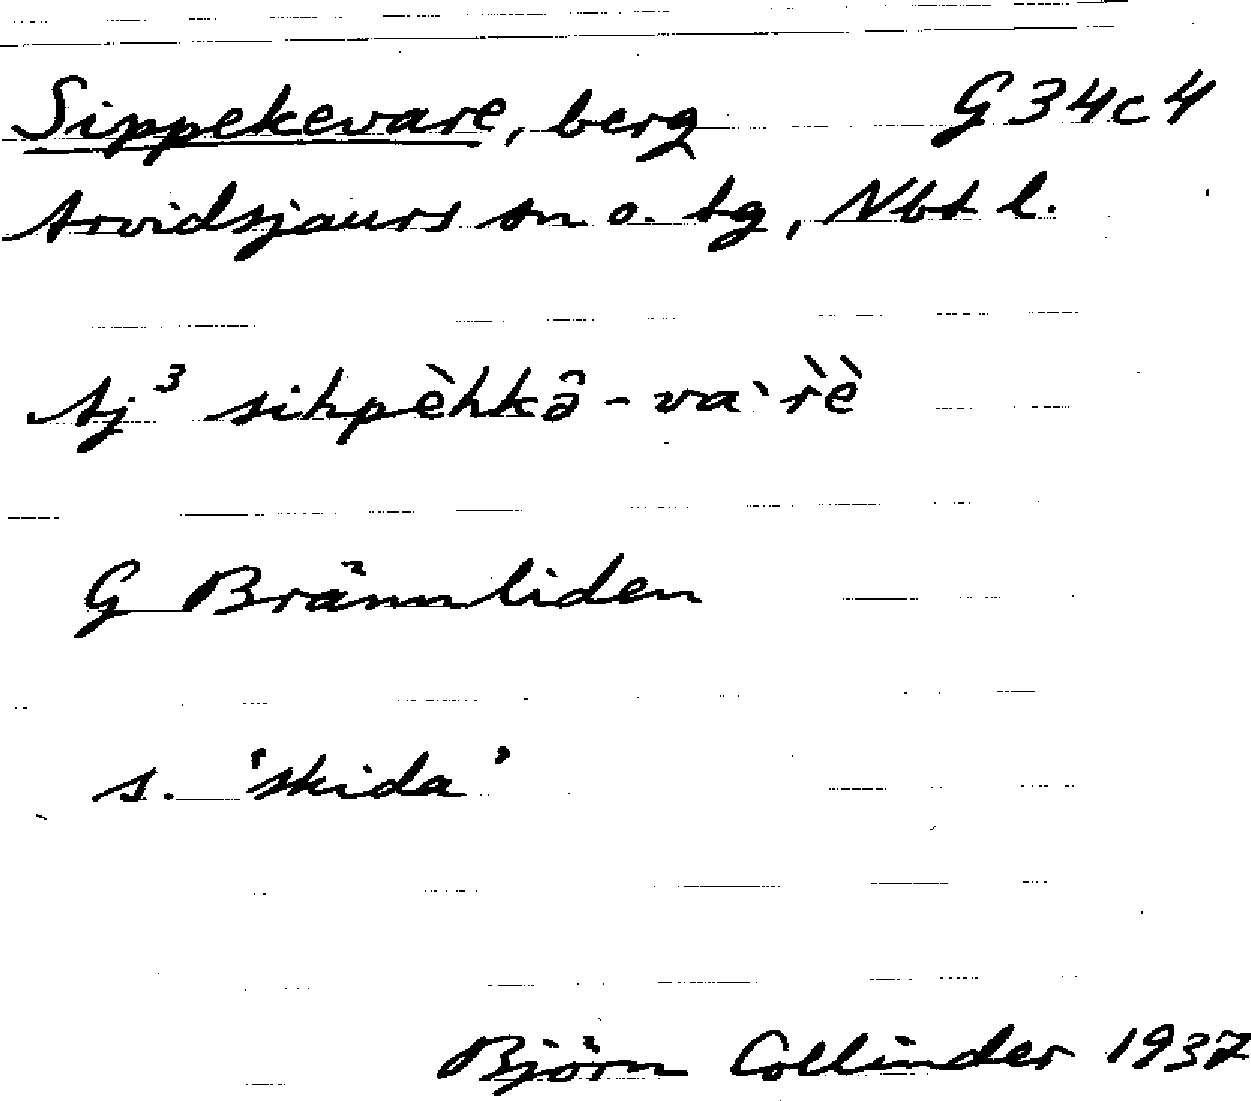 Sippekevare, berg G 34c4
Arvidsjaurs sn o. tg, Nbt l.
Aj³ sihpèhkâ-va`r̀è
G Brännliden
s. 'skida'
Björn Collinder 1937